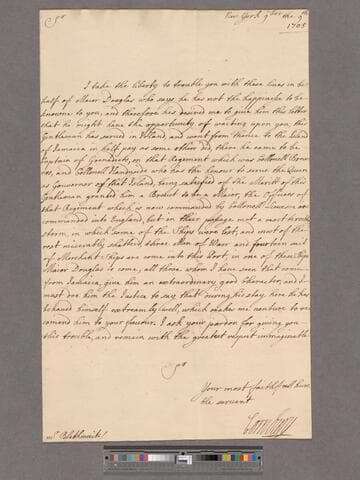 New York 9ber the 9th
1705
Sr
I take the liberty to trouble you with these lines in be-
half of Maior Douglas who says he has not the happinesse to be
knowne to you, and therefore has desired me to give him this letter
that he might have the opportunity of waiting upon you, this
Gentleman has served in and went from thence to the Island
of Jamaica in half pay as some other did, there he came to be
Captain of Granadeers, in that Regiment which was Collonell
and Collonell Handasyde who has the honour to serve the Queen
as Governour of that Island, being satisfied of the Meritt of this
Gentleman granted him a Brevet to be a Maior, the Officers of
that Regiment which is now commanded by Collonell were
commanded into England, but in their passage mett a most
storm, in which some of the Ships were lost, and most of the
rest miserably shatter'd three Men of Warr and fourteen sail
of Merchant-Ships are come into this Port, in one of these Ships
Maior Douglas is come, all those whom I have seen that come
from Jamaica, give him an extraordinary good Character, and I
must doe him the Justice to say that during his stay here he has
behaved himself extreamly well, which makes me venture to re-
comend him to your favour. I ask your pardon for giving you
this trouble, and remain with the greatest respect immaginable
Sr
Your most faithfull hum-
ble servant
Cornbury
Mr Blathwait